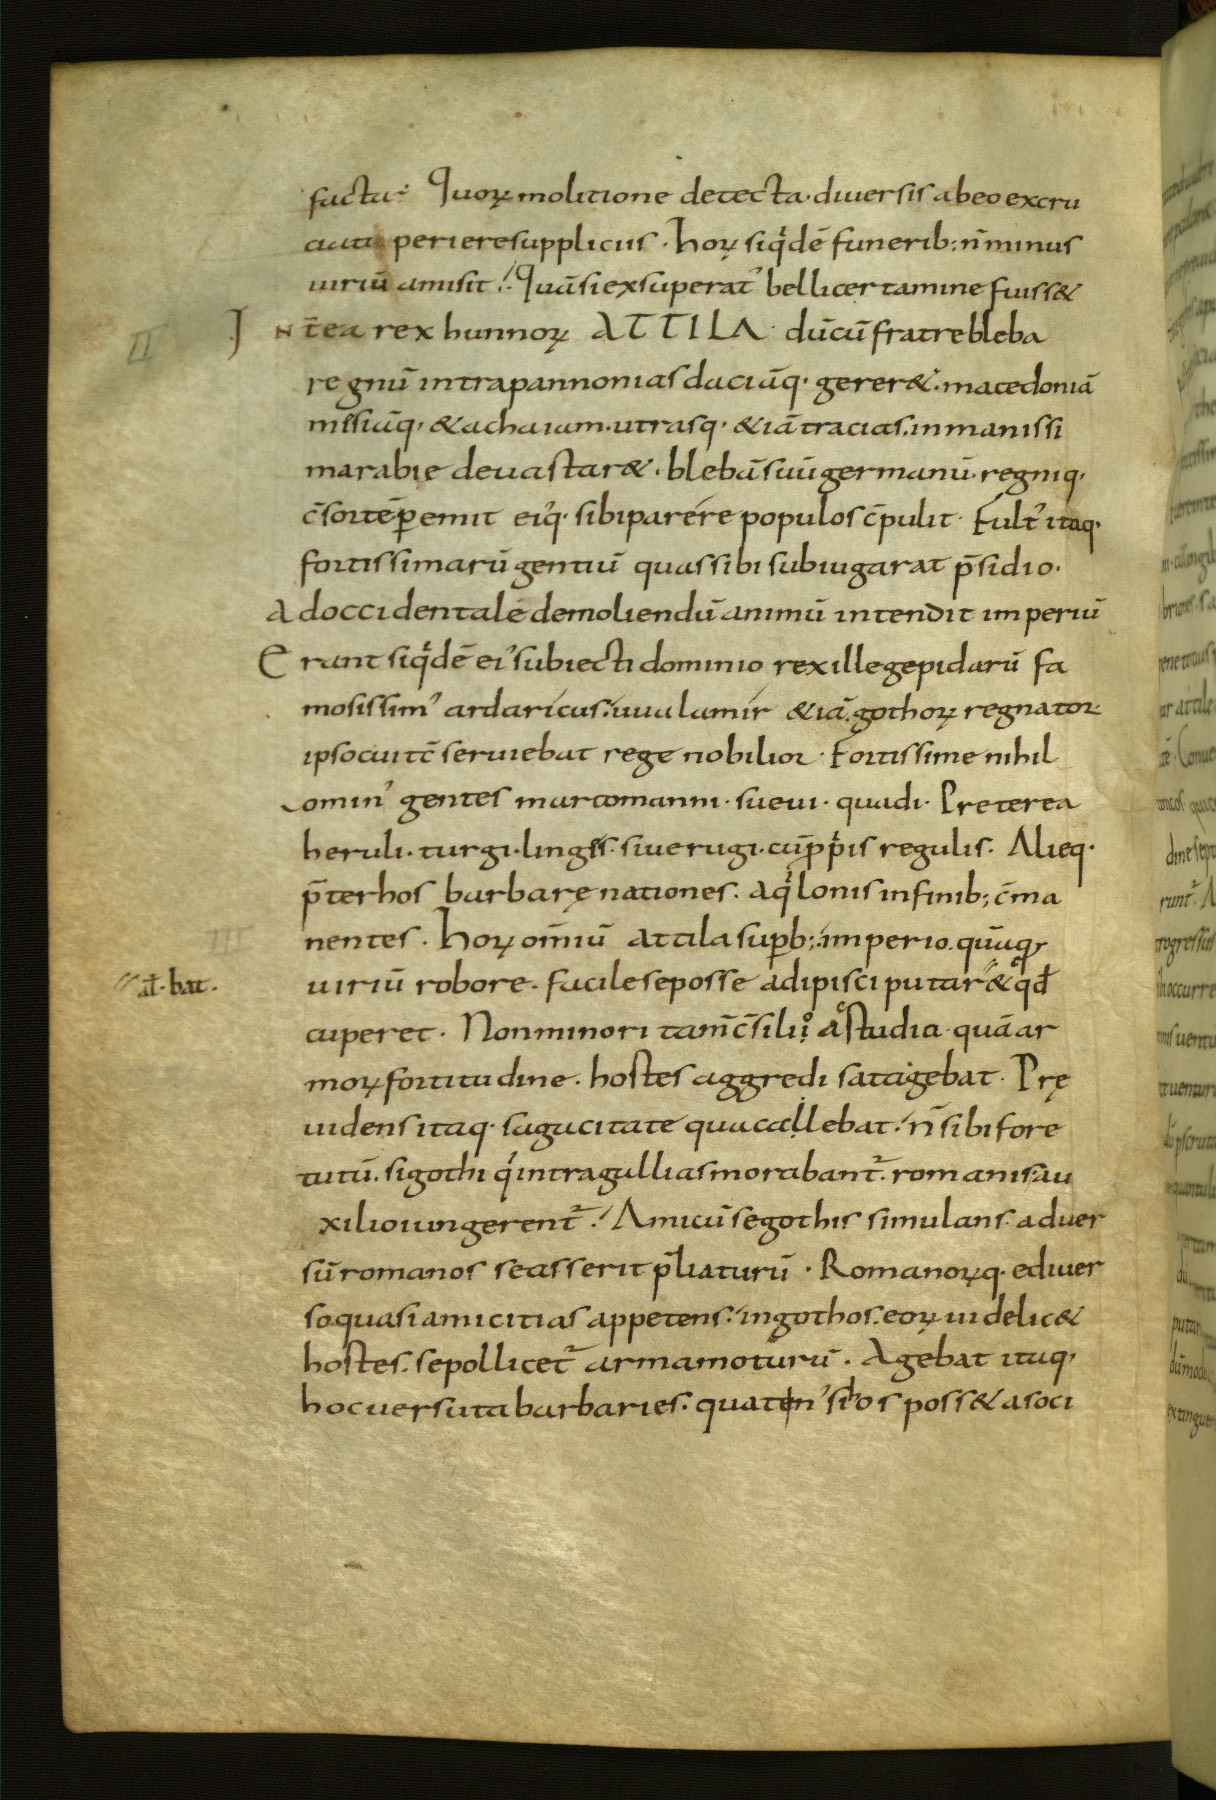 facta. Quoꝝ molitione detecta · diuersis ab eo excru
ciati periere suppliciis · Hoꝝ siqͥdē funerib; n̄ minus
uiriū amisit. Quā si exsuperatꝰ belli certamine fuiss&
II
Int̄ea rex hunnoꝝ ATTILA · dū cū fratre bleba
regnū intra pannonias daciāq· gerer& · macedoniā
misiāq· & achaiam · utrasq· & iā tracias · inmanissi
ma rabie deuastar& · blebā suū germanū · regniq·
c̄sortē ꝑemit eiꝰq· sibi parére populos c̄pulit · Fultꝰ itaq·
fortissimarū gentiū quas sibi subiugarat p̄sidio ·
ad occidentale demoliendū animū intendit imperiū
Erant siqͥdē eiꝰ subiecti dominio rex ille gepidarū fa
mosissimꝰ ardaricus · uualamír & iā gothoꝝ regnator
ipso cui tc̄ seruiebat rege nobilior · Fortissime nihil
ominꝰ gentes marcomanni · sueui · quadi · Preterea
heruli · turgi · lingis · siue rugi · cū p̄pͥis regulis · Alieq·
p̄ter hos barbarę nationes · aqͥlonis in finib; c̄ma
III
nentes · Hoꝝ om̄iū attila suꝑb; imperio · quāq
uiriū robore · facile se posse adipisci putar& qd̄
al̄ · bat ·
cuperet · Non minori tam̄ c̄silii astudia · quā ar
moꝝ fortitudine · hostes aggredi satagebat · Prę
uidens itaq· sagacitate qua callebat · n̄ sibi fore
tutū · si gothi qͥ intra gallias morabant᷑ · romanis au
xilio iungerent᷑ · Amicū se gothis simulans · aduer
sū romanos se asserit p̄liaturū · Romanoꝝq· e diuer
so · quasi amicitias appetens · in gothos · eoꝝ uidelic&
hostes · se pollicet᷑ arma moturū · Agebat itaq·
hoc uersuta barbaries · quatenꝰ si hos poss& a soci